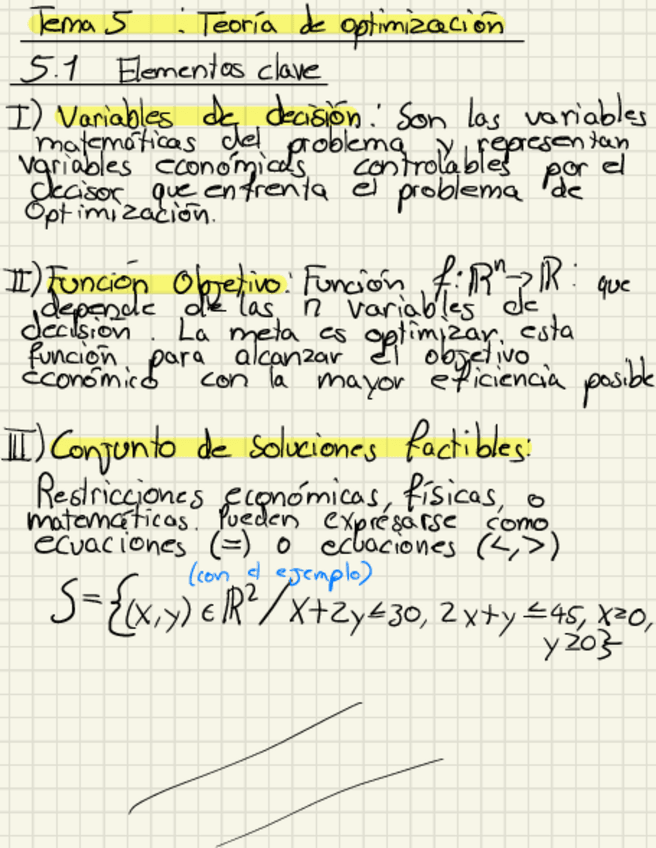 Tema 5 : Teoría de optimización
5.1 Elementos clave
I) Variables de decisión: Son las variables
matemáticas del problema y representan
variables económicas controlables por el
decisor que enfrenta el problema de
Optimización.
II) Función Objetivo: Función f: ℝⁿ→ℝ : que
depende de las n variables de
decisión. La meta es optimizar esta
función para alcanzar el objetivo
económico con la mayor eficiencia posible
III) Conjunto de soluciones factibles:
Restricciones económicas, físicas, o
matemáticas. Pueden expresarse como
ecuaciones (=) o ecuaciones (<,>)
(con el ejemplo)
S={(x,y) ∈ ℝ² / x+2y≤30, 2x+y ≤45, x≥0,
y≥0}